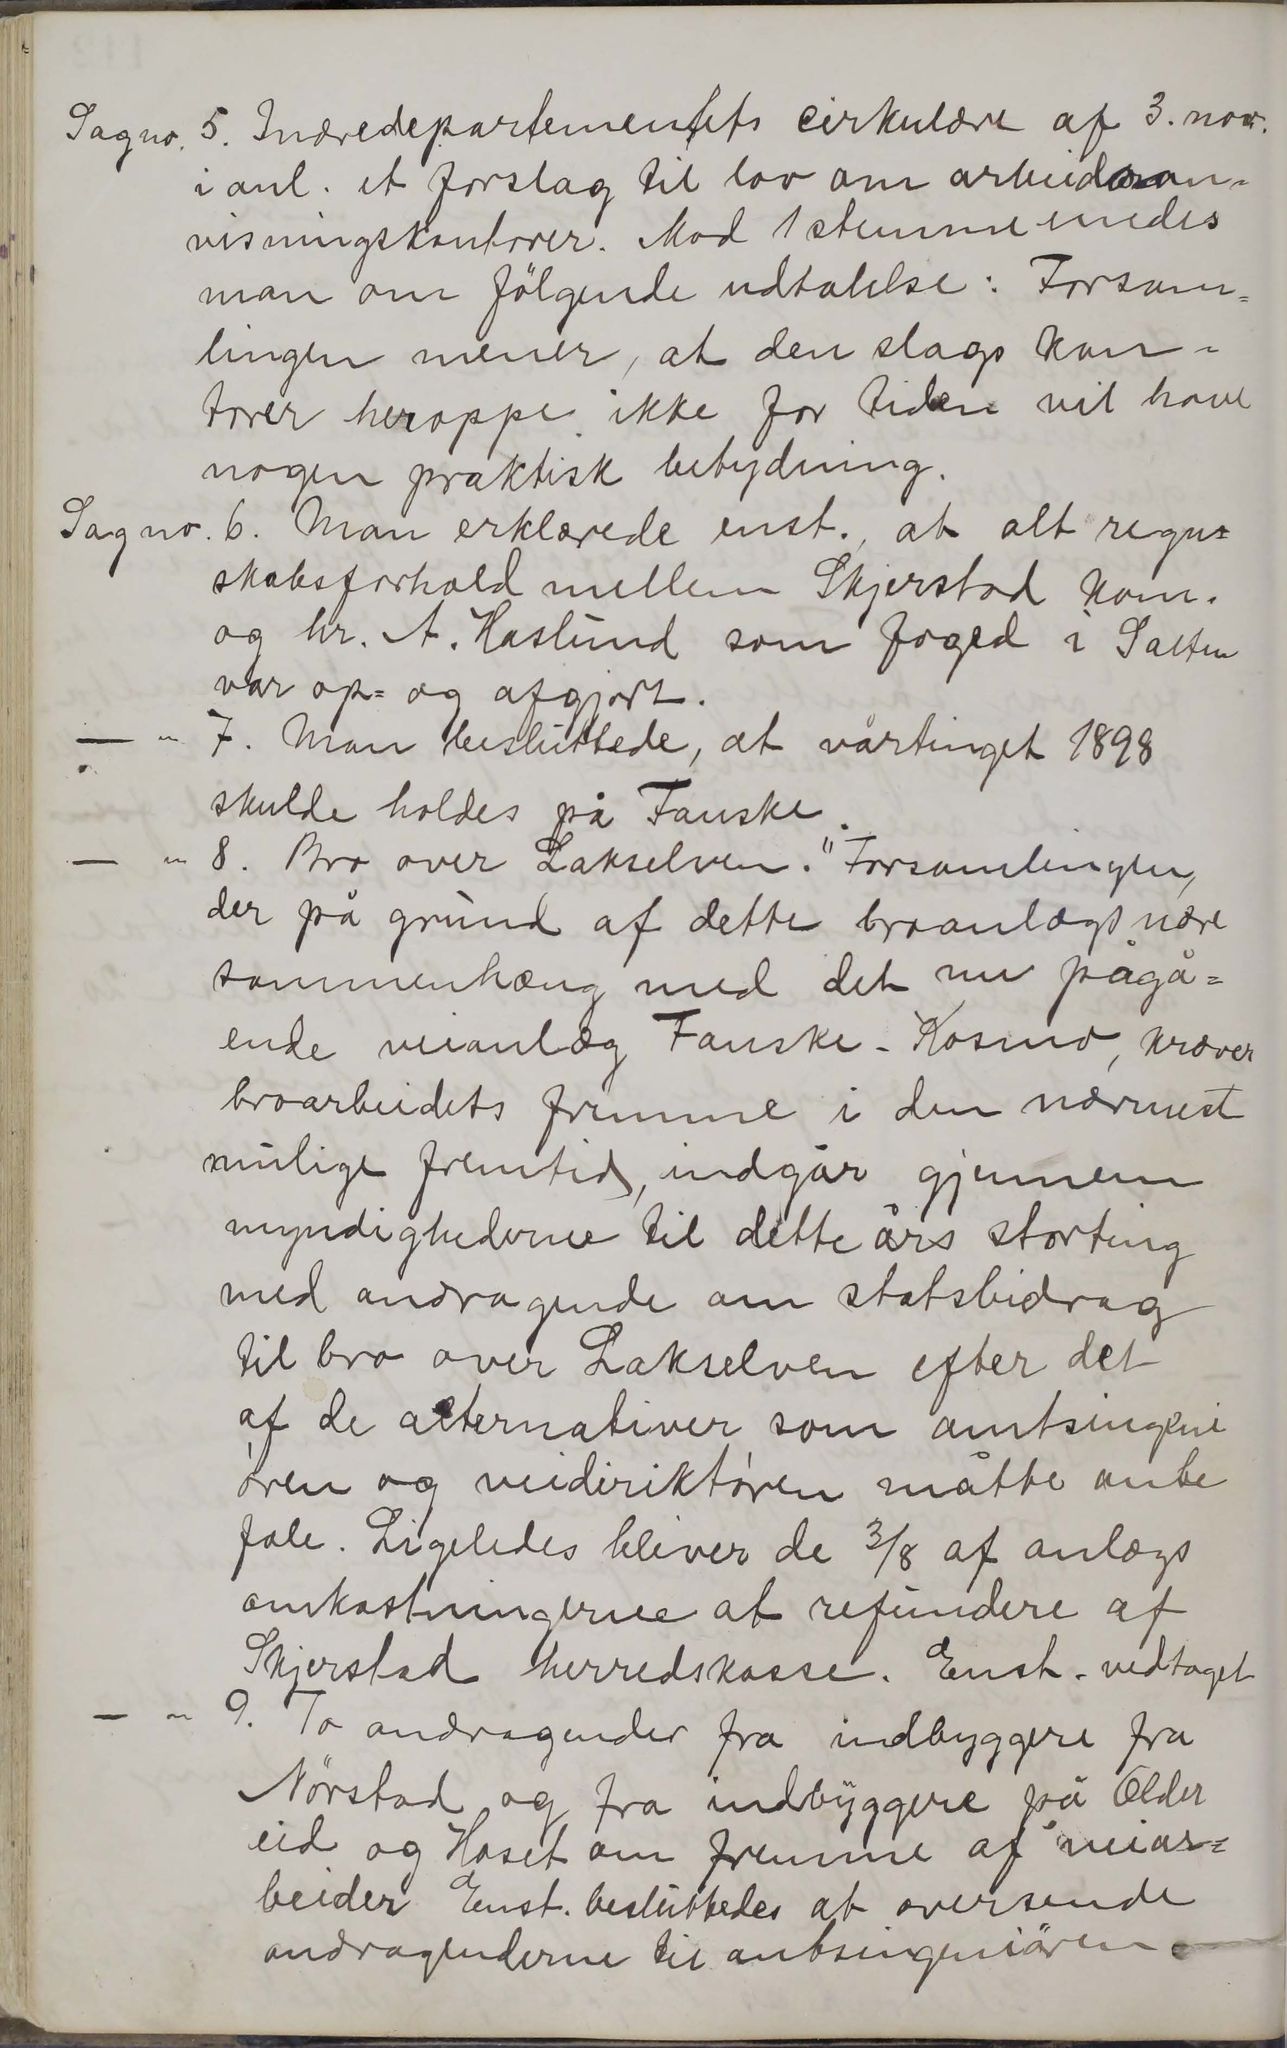 Sagno. 5. Inredepartementets cirkulære af 3. nov.
i anl. et forslag til lov om arbeidsan-
visningskontorer. Mod 1 stemme enedes
man om følgende udtalelse: Forsam=
lingen mener, at den slags kon-
torer heroppe ikke for tiden vil have
nogen praktisk betydning.
Sagno. 6. Man erklærede enst., at alt regn=
skabsforhold mellem Skjerstad kom.
og hr. A. Haslund som foged i Salten
var op= og afgjort.
— " 7. Man besluttede, at vårtinget 1898
skulde holdes på Fauske.
— " 8. Bro over Lakselven. "Forsamlingen,
der på grund af dette broanlægs nære
sammenhæng med det nu pågå=
ende veianlæg Fauske - Kosmo, kræver
broarbeidets fremme i den nærmest
mulige fremtid, indgår gjennem
myndighederne til dette års storting
med andragende om statsbidrag
til bro over Lakselven efter det
af de alternativer som amtsingeni
øren og veidirektøren måtte anbe
fale. Ligeledes bliver de 3/8 af anlægs
omkostningerne at refundere af
Skjerstad herredskasse. Enst. vedtaget
— " 9. To andragender fra indbyggere fra
Nørstad og fra indbyggere på Older
eid og Hoset om fremme af veiar=
beider Enst. besluttedes at oversende
andragenderne til amtsingeniøren.